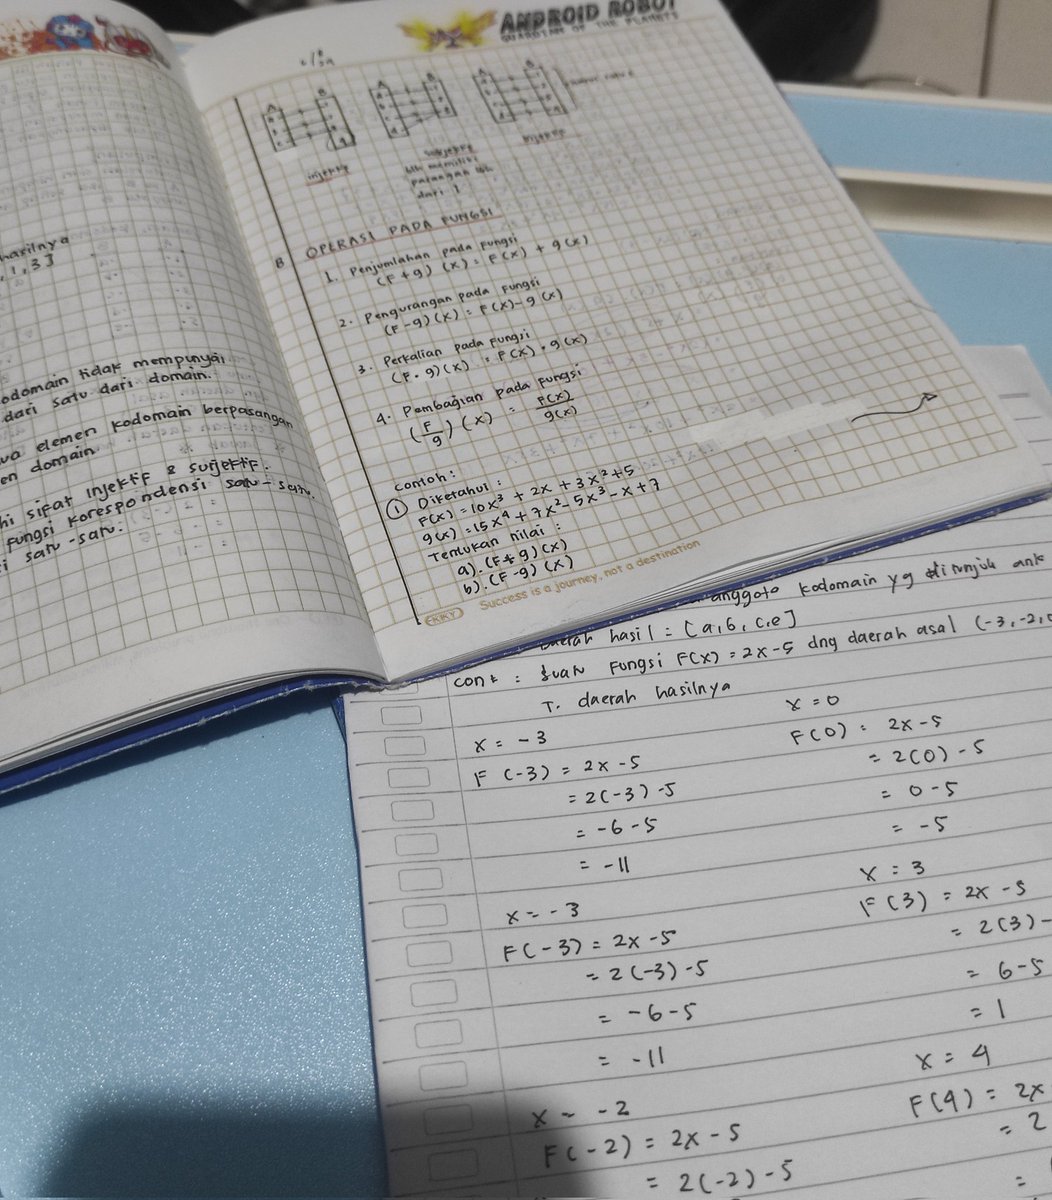 hasilnya
, 1, 3}
odomain tidak mempunyai
dari satu dari domain.
ua elemen kodomain berpasangan
en domain.
hi sifat injektif & surjektif.
fungsi korespondensi satu-satu.
i satu-satu.
ANDROID ROBOT
GUARDIAN OF THE PLANETS
A B A B A B
injektif
surjektif
injektif
dari 1
B OPERASI PADA FUNGSI
1. Penjumlahan pada fungsi
(F+g) (x) = F(x) + g(x)
2. Pengurangan pada fungsi
(F-g)(x) = F(x)-g(x)
3. Perkalian pada fungsi
(F.g)(x) = F(x).g(x)
4. Pembagian pada fungsi
(F/g)(x) = F(x)/g(x)
contoh:
① Diketahui:
F(x)=10x³ + 2x + 3x²+5
g(x)=15x⁴+7x²-5x³-x+7
Tentukan nilai:
a). (F+g)(x)
b). (F-g)(x)
KIKY Success is a journey, not a destination
anggota kodomain yg di tunjuk
daerah hasil = [a,b,c,e]
cont : suatu fungsi F(x)=2x-5 dng daerah asal (-3,-2,0
T. daerah hasilnya
x = -3
F(-3) = 2x-5
= 2(-3)-5
= -6-5
= -11
x = -3
F(-3) = 2x-5
= 2(-3)-5
= -6-5
= -11
x = -2
F(-2) = 2x-5
= 2(-2)-5
x = 0
F(0) = 2x-5
= 2(0)-5
= 0-5
= -5
x = 3
F(3) = 2x-5
= 2(3)-
= 6-5
= 1
x = 4
F(4) = 2x
= 2
=